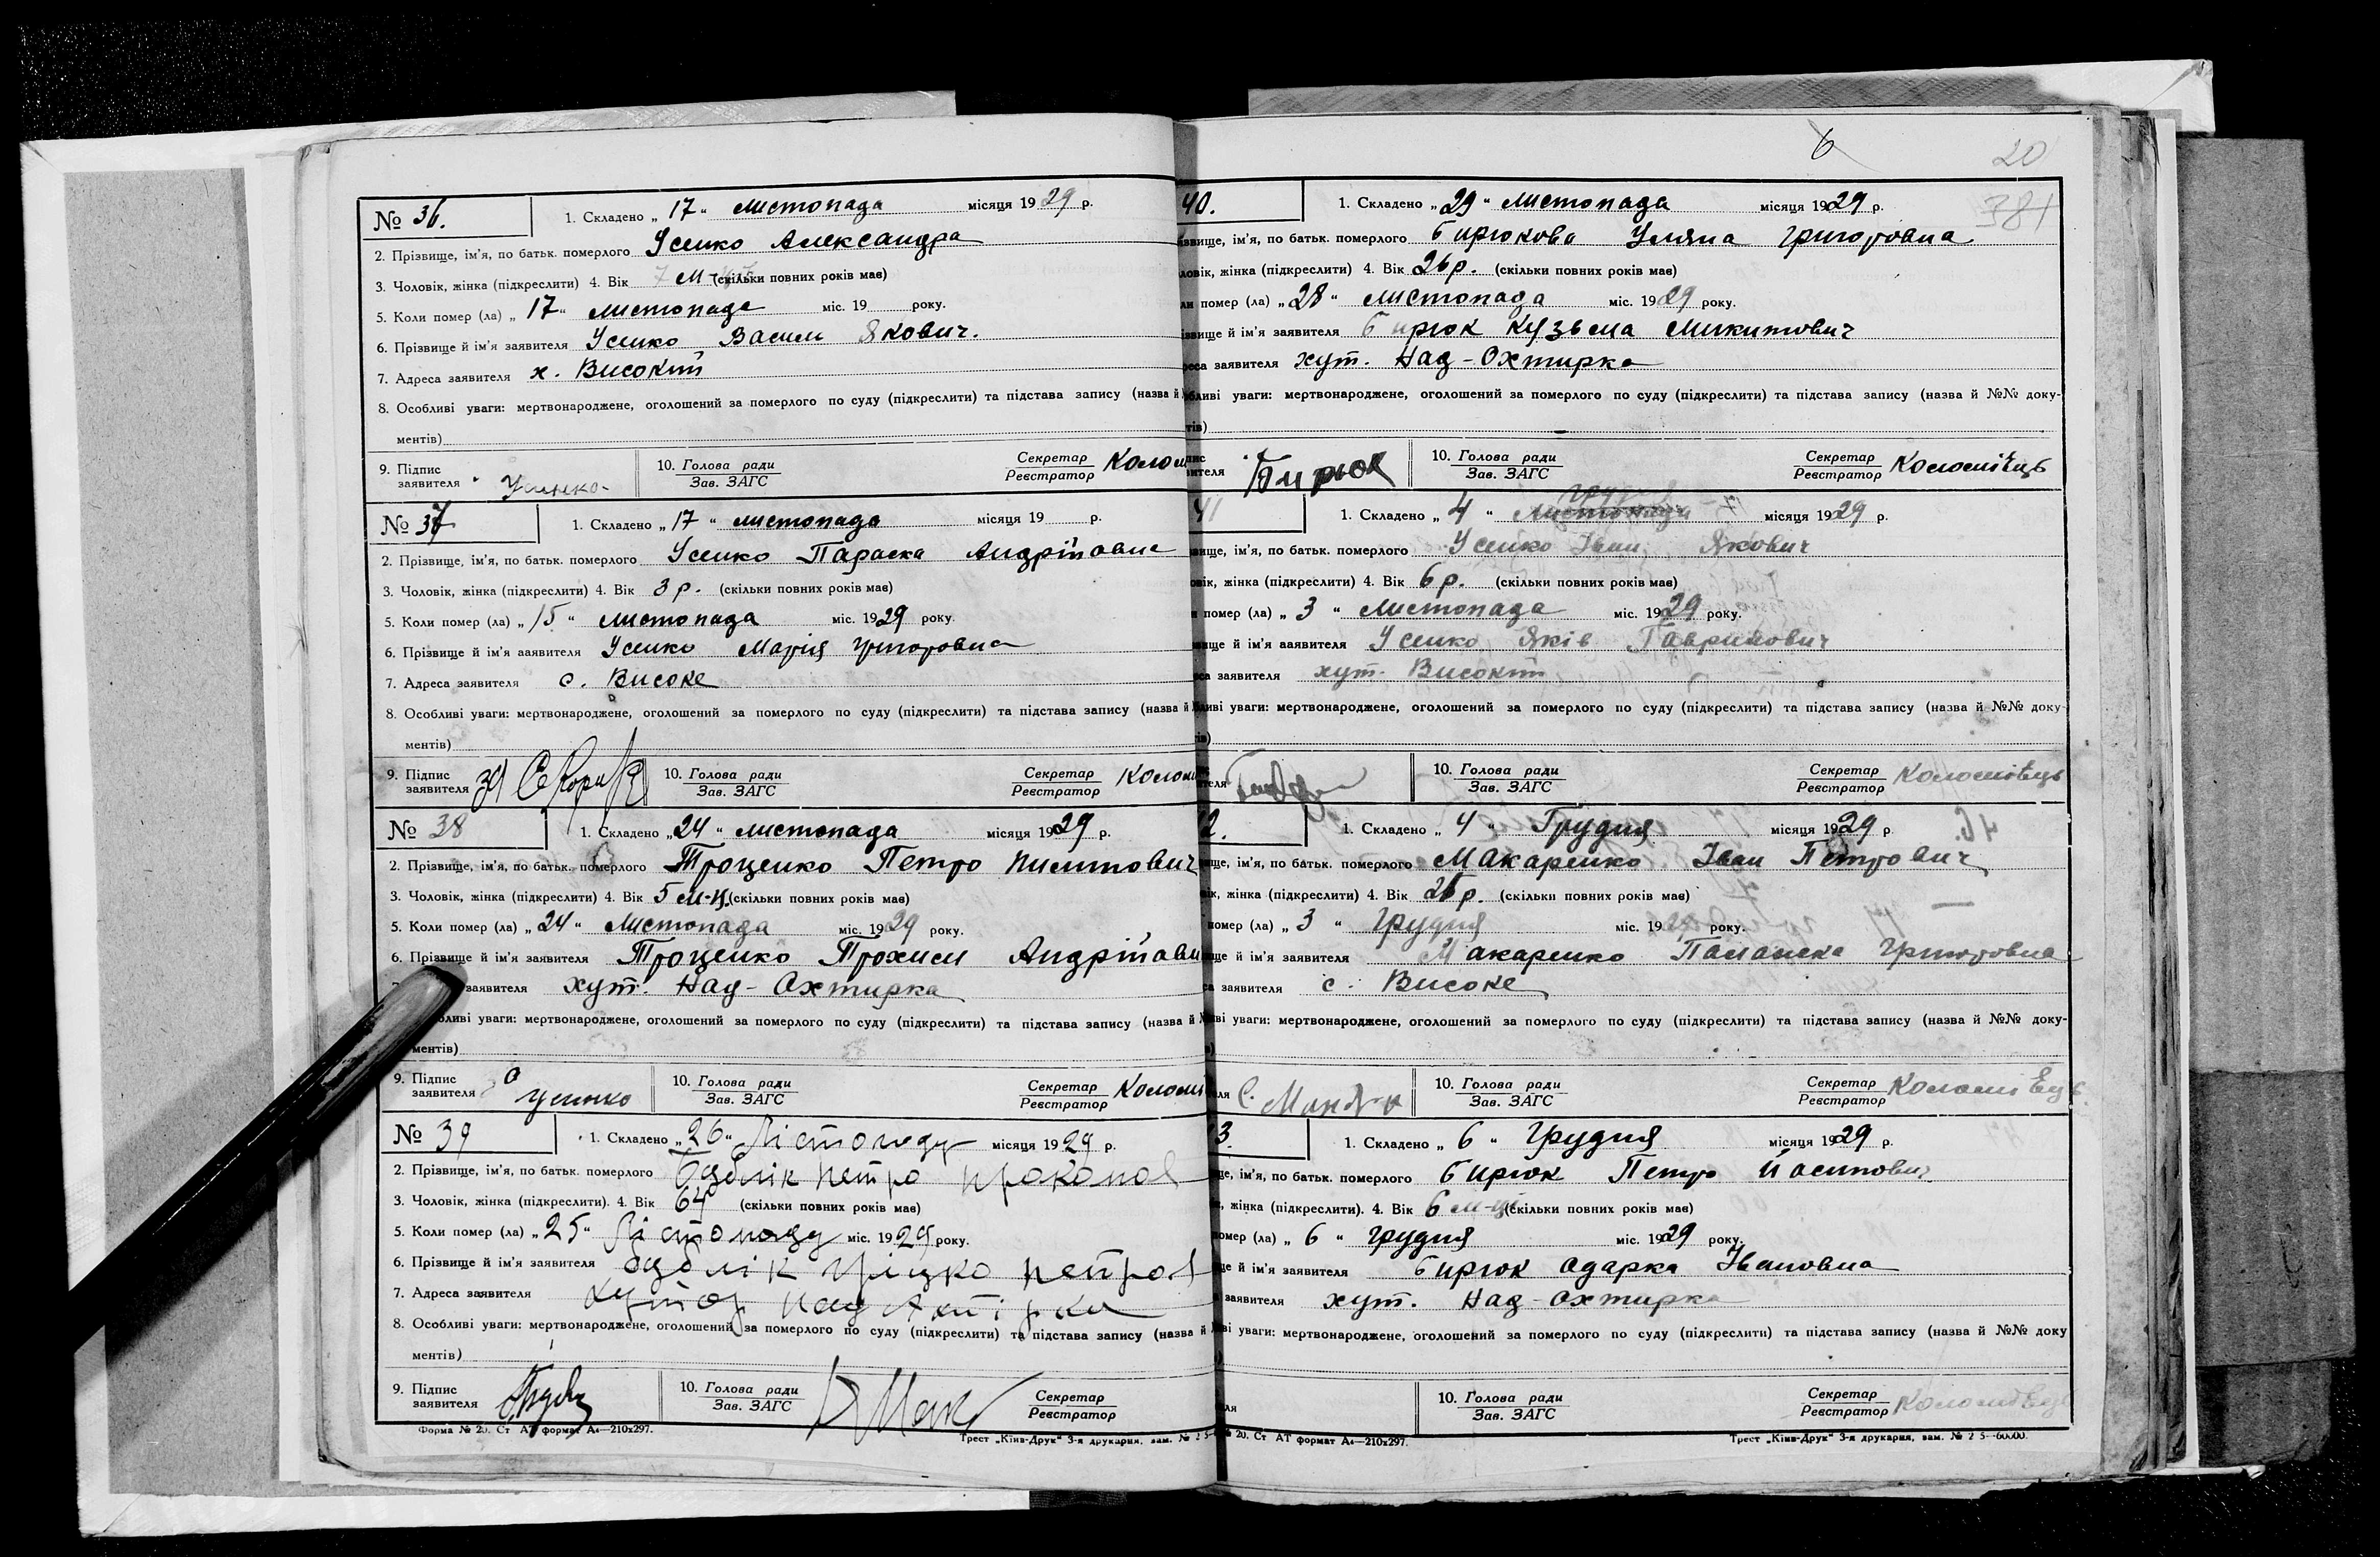 № 36. 1. Складено „17“ листопада місяця 1929 р.
2. Прізвище, ім'я, по батьк. померлого Усенко Александра
3. Чоловік, жінка (підкреслити) 4. Вік 7 м (скільки повних років має)
5. Коли помер (ла) „17“ листопада міс. 19 року.
6. Прізвище й ім'я заявителя Усенко Васили Якович.
7. Адреса заявителя х. Високий
8. Особливі уваги: мертвонароджене, оголошений за померлого по суду (підкреслити) та підстава запису (назва й
ментів)
9. Підпис заявителя Усенко 10. Голова ради Зав. ЗАГС Секретар Реєстратор Колом
№ 37 1. Складено „17“ листопада місяця 19 р.
2. Прізвище, ім'я, по батьк. померлого Усенко Параска Андрійовна
3. Чоловік, жінка (підкреслити) 4. Вік 3 р. (скільки повних років має)
5. Коли помер (ла) „15“ листопада міс. 1929 року.
6. Прізвище й ім'я заявителя Усенко Марія Григоровна
7. Адреса заявителя с. Високе
8. Особливі уваги: мертвонароджене, оголошений за померлого по суду (підкреслити) та підстава запису (назва й
ментів)
9. Підпис заявителя 10. Голова ради Зав. ЗАГС Секретар Реєстратор Колом
№ 38 1. Складено „24“ листопада місяця 1929 р.
2. Прізвище, ім'я, по батьк. померлого Троценко Петро Пилипович
3. Чоловік, жінка (підкреслити) 4. Вік 5 м-ц. (скільки повних років має)
5. Коли помер (ла) „24“ Листопада міс. 1929 року.
6. Прізвище й ім'я заявителя Троценко Андрійови
заявителя хут. Над-Охтирка
ливі уваги: мертвонароджене, оголошений за померлого по суду (підкреслити) та підстава запису (назва й
ментів)
9. Підпис заявителя Усенко 10. Голова ради Зав. ЗАГС Секретар Реєстратор Коломі
№ 39 1. Складено „26“ Лістопаду місяця 1929 р.
2. Прізвище, ім'я, по батьк. померлого Петро Прокопов
3. Чоловік, жінка (підкреслити). 4. Вік 64 (скільки повних років має)
5. Коли помер (ла) „25“ Лістопаду міс. 1929 року.
6. Прізвище й ім'я заявителя Грицко Петров
7. Адреса заявителя хутор Над Ахтірка
8. Особливі уваги: мертвонароджене, оголошений за померлого по суду (підкреслити) та підстава запису (назва й
ментів)
9. Підпис заявителя 10. Голова ради Зав. ЗАГС Секретар Реєстратор
Форма № 20. Ст АТ формат А4—210x297. Трест „Київ-Друк“ 3-я друкарня, зам. №
6 20
381
40. 1. Складено „29“ Листопада місяця 1929 р.
ізвище, ім'я, по батьк. померлого Бирюкова Уляна Григоровна
ловік, жінка (підкреслити) 4. Вік 26 р. (скільки повних років має)
ли помер (ла) „28“ листопада міс. 1929 року.
ізвище й ім'я заявителя Бирюк Кузьма Микитович
реса заявителя хут. Над-Охтирка
бливі уваги: мертвонароджене, оголошений за померлого по суду (підкреслити) та підстава запису (назва й №№ доку-
тів)
пис вителя Бирюк 10. Голова ради Зав. ЗАГС Секретар Реєстратор Коломієць
41 1. Складено „4“ Листопада грудня місяця 1929 р.
вище, ім'я, по батьк. померлого Усенко Іван Якович
овік, жінка (підкреслити) 4. Вік 6 р. (скільки повних років має)
и помер (ла) „3“ Листопада міс. 1929 року.
вище й ім'я заявителя Усенко Яків Гаврилович
еса заявителя хут. Високий
ливі уваги: мертвонароджене, оголошений за померлого по суду (підкреслити) та підстава запису (назва й №№ доку-
ів)
теля 10. Голова ради Зав. ЗАГС Секретар Реєстратор Коломієць
2. 1. Складено „4“ Грудня місяця 1929 р.
ище, ім'я, по батьк. померлого Макаренко Іван Петрович
ік, жінка (підкреслити) 4. Вік 26 р. (скільки повних років має)
помер (ла) „3“ Грудня міс. 1929 року.
ище й ім'я заявителя Макаренко Григоровна
са заявителя с. Високе
ві уваги: мертвонароджене, оголошений за померлого по суду (підкреслити) та підстава запису (назва й №№ доку-
ля 10. Голова ради Зав. ЗАГС Секретар Реєстратор Коломієць
3. 1. Складено „6“ Грудня місяця 1929 р.
ще, ім'я, по батьк. померлого Бирюк Петро Йосипович
, жінка (підкреслити). 4. Вік 6 м-ці (скільки повних років має)
омер (ла) „6“ грудня міс. 1929 року.
ще й ім'я заявителя Бирюк Одарка Івановна
заявителя хут. Над-Охтирка
ві уваги: мертвонароджене, оголошений за померлого по суду (підкреслити) та підстава запису (назва й №№ доку
ля 10. Голова ради Зав. ЗАГС Секретар Реєстратор Коломієць
№ 20. Ст АТ формат А4—210x297. Трест „Київ-Друк“ 3-я друкарня, зам. №